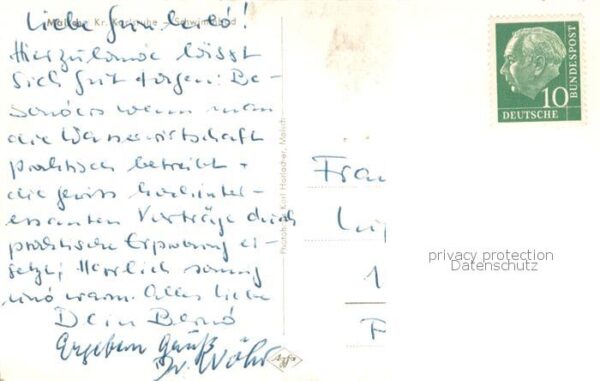 Malsch Kr. Karlsruhe - Schwimmbad
Liebe
Hierzulande lässt
sich gut sorgen: Be-
sonders wenn man
die Wasserwirtschaft
praktisch betreibt +
die gewiss hochinter-
essanten Vorträge durch
praktische ersetzt
Herrlich sonnig
und warm. Alles Liebe
Dein Bernd
Ergeben
Photo Karl Horlacher, Malsch
Agfa
DEUTSCHE
BUNDESPOST
10
Frau
1
F
privacy protection
Datenschutz